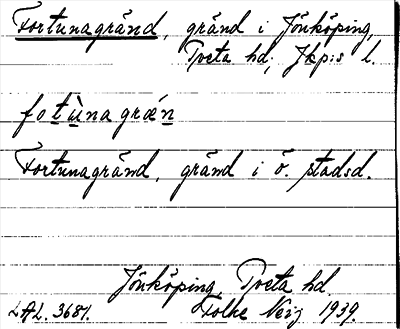 Fortunagränd, gränd i Jönköping,
Tveta hd, Jkp:s l.
fotùnagræn
Fortunagränd, gränd i ö. stadsd.
Jönköping, Tveta hd
LAL. 3681. Folke Neij 1939.